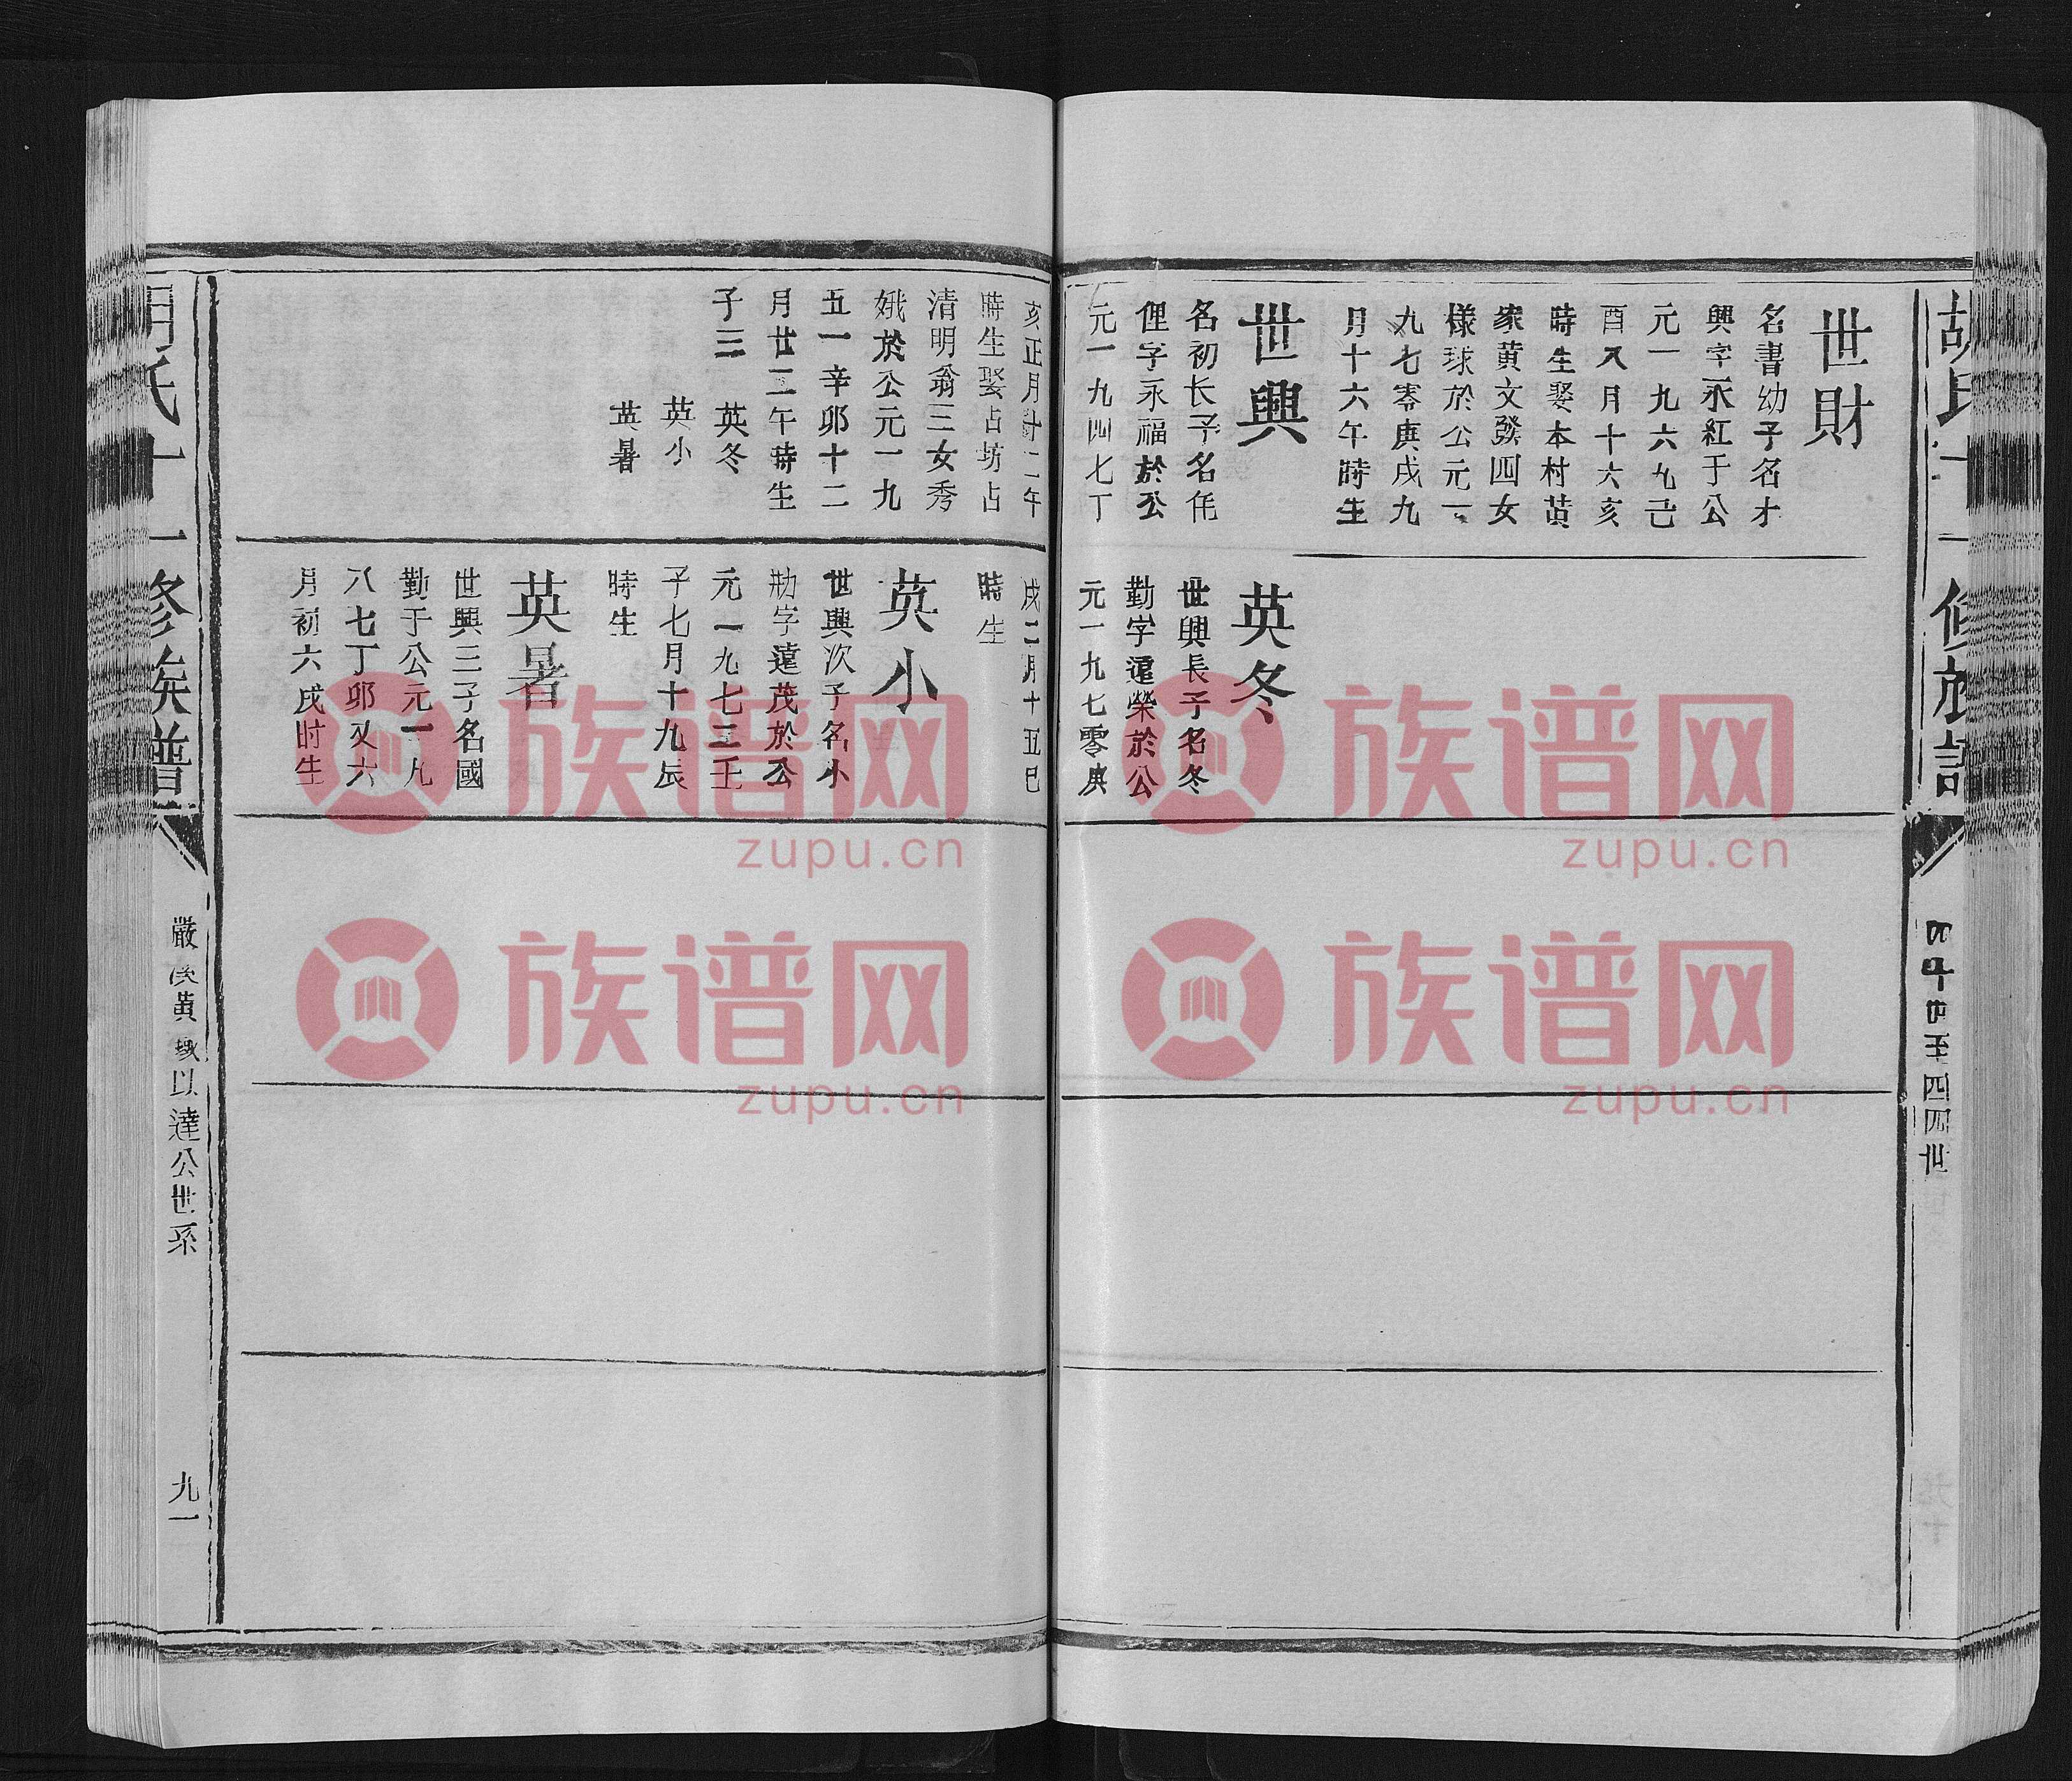 胡氏十一修族譜
四十世至四四世
世財
名書幼子名才
興字永紅于公
元一九六九己
酉八月十六亥
時生娶本村黄
家黄文發四女
様球於公元一
九七零庚戌九
月十六午時生
世興
名初长子名侘
俚字永福於公
元一九四七丁
亥正月廿二午
時生娶占坊占
清明翁三女秀
娥於公元一九
五一辛卯十二
月廿二午時生
子三 英冬
英小
英暑
英冬
世興長子名冬
勤字遠榮於公
元一九七零庚
戌二月十五巳
時生
英小
世興次子名小
勤字遠茂於公
元一九七二壬
子七月十九辰
時生
英暑
世興三子名國
勤于公元一九
八七丁卯又六
月初六戌时生
胡氏十一修族譜
嚴 黄 以達公世系
九一
族谱网
zupu.cn
族谱网
zupu.cn
族谱网
zupu.cn
族谱网
zupu.cn